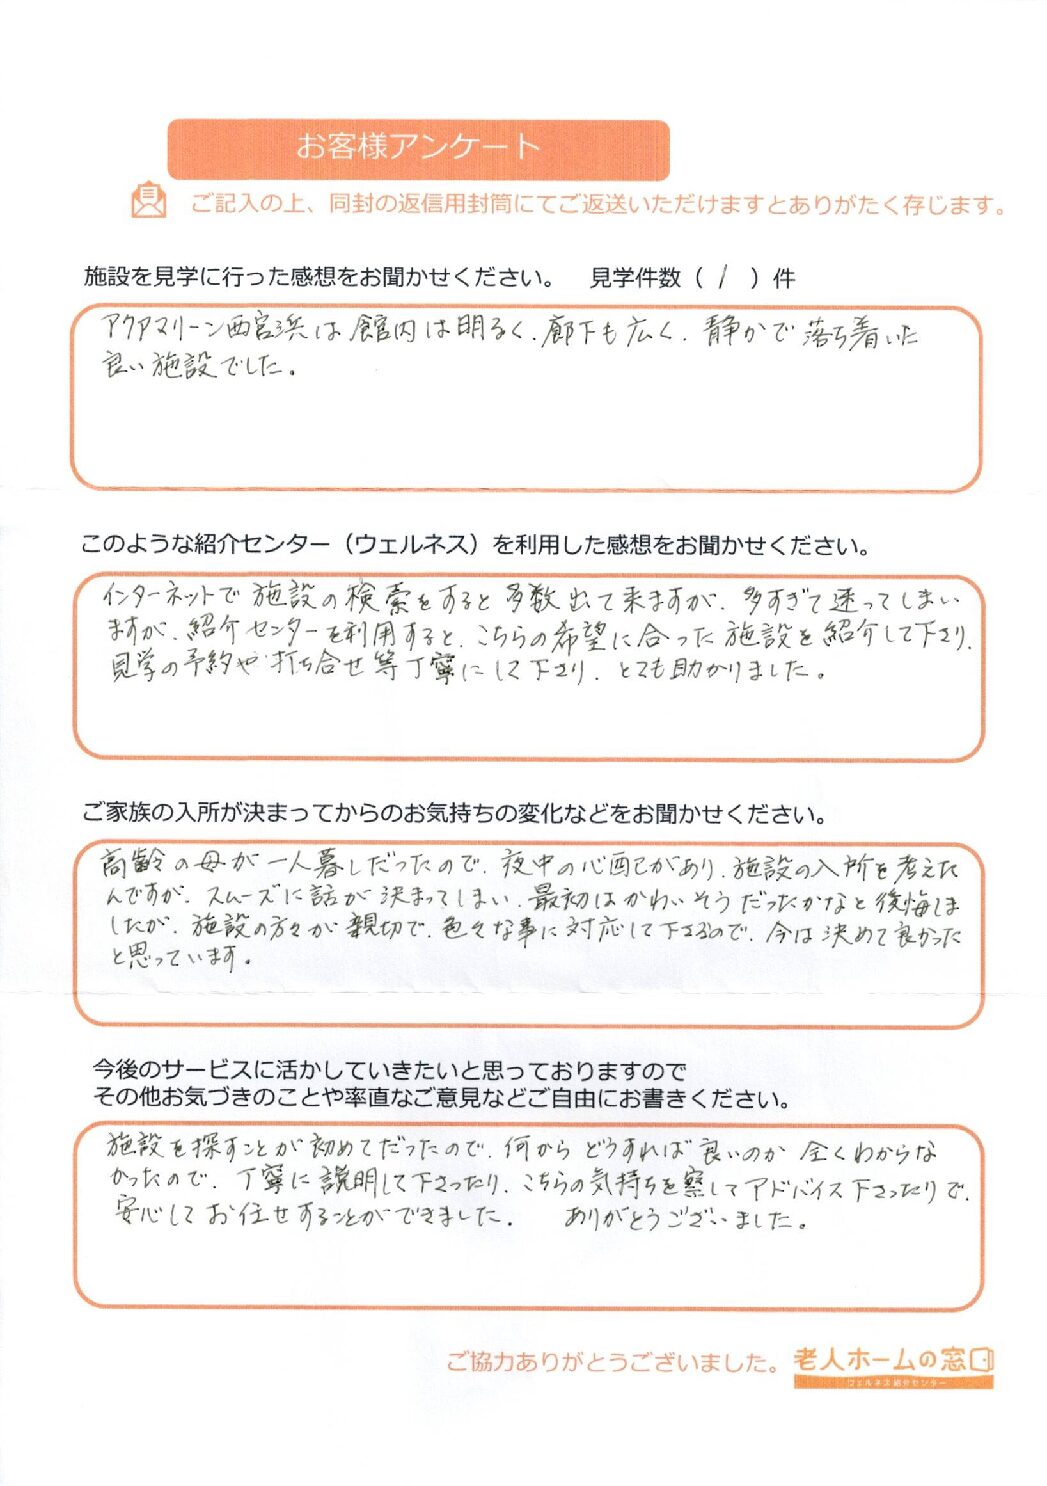 お客様アンケート
ご記入の上、同封の返信用封筒にてご返送いただけますとありがたく存じます。
施設を見学に行った感想をお聞かせください。　見学件数（ 1 ）件
アクアマリーン西宮浜は館内は明るく、廊下も広く、静かで落ち着いた
良い施設でした。
このような紹介センター（ウェルネス）を利用した感想をお聞かせください。
インターネットで施設の検索をすると多数出て来ますが、多すぎて迷ってしまい
ますが、紹介センターを利用すると、こちらの希望に合った施設を紹介して下さり、
見学の予約や打ち合せ等丁寧にして下さり、とても助かりました。
ご家族の入所が決まってからのお気持ちの変化などをお聞かせください。
高齢の母が一人暮しだったので、夜中の心配があり、施設の入所を考えた
んですが、スムーズに話が決まってしまい、最初はかわいそうだったかなと後悔しま
したが、施設の方々が親切で、色々な事に対応して下さるので、今は決めて良かった
と思っています。
今後のサービスに活かしていきたいと思っておりますので
その他お気づきのことや率直なご意見などご自由にお書きください。
施設を探すことが初めてだったので、何からどうすれば良いのか全くわからな
かったので、丁寧に説明して下さったり、こちらの気持ちを察してアドバイス下さったりで、
安心してお任せすることができました。　ありがとうございました。
ご協力ありがとうございました。 老人ホームの窓口
ウェルネス紹介センター